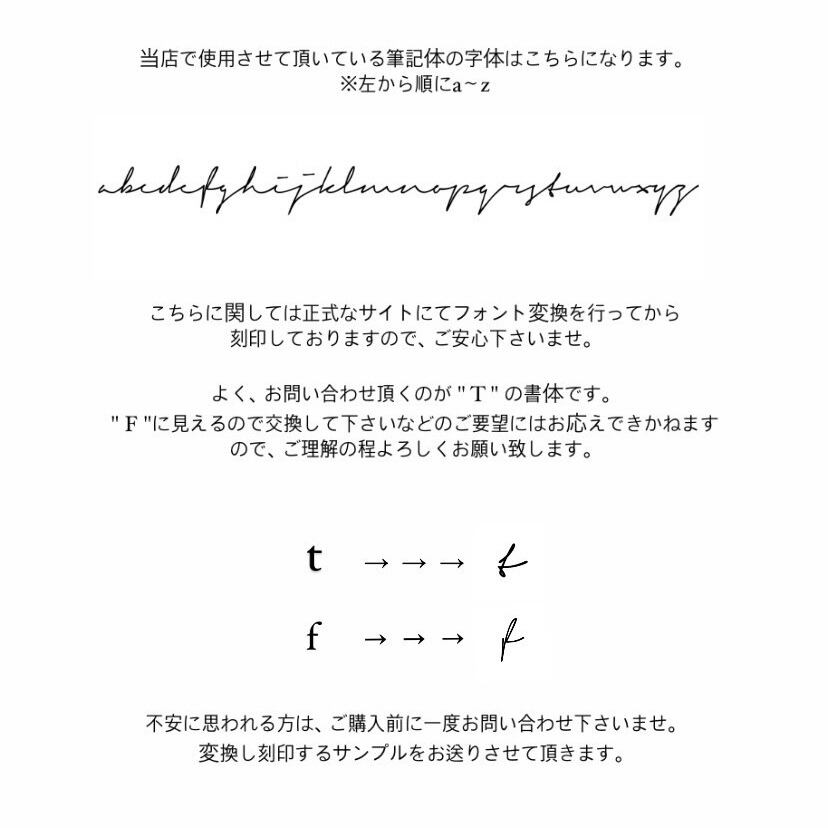 当店で使用させて頂いている筆記体の字体はこちらになります。
※左から順にa~z
abcdefghijklmnopqrstuvwxyz
こちらに関しては正式なサイトにてフォント変換を行ってから
刻印しておりますので、ご安心下さいませ。
よく、お問い合わせ頂くのが " T " の書体です。
" F "に見えるので交換して下さいなどのご要望にはお応えできかねます
ので、ご理解の程よろしくお願い致します。
t →→→ t
f →→→ f
不安に思われる方は、ご購入前に一度お問い合わせ下さいませ。
変換し刻印するサンプルをお送りさせて頂きます。